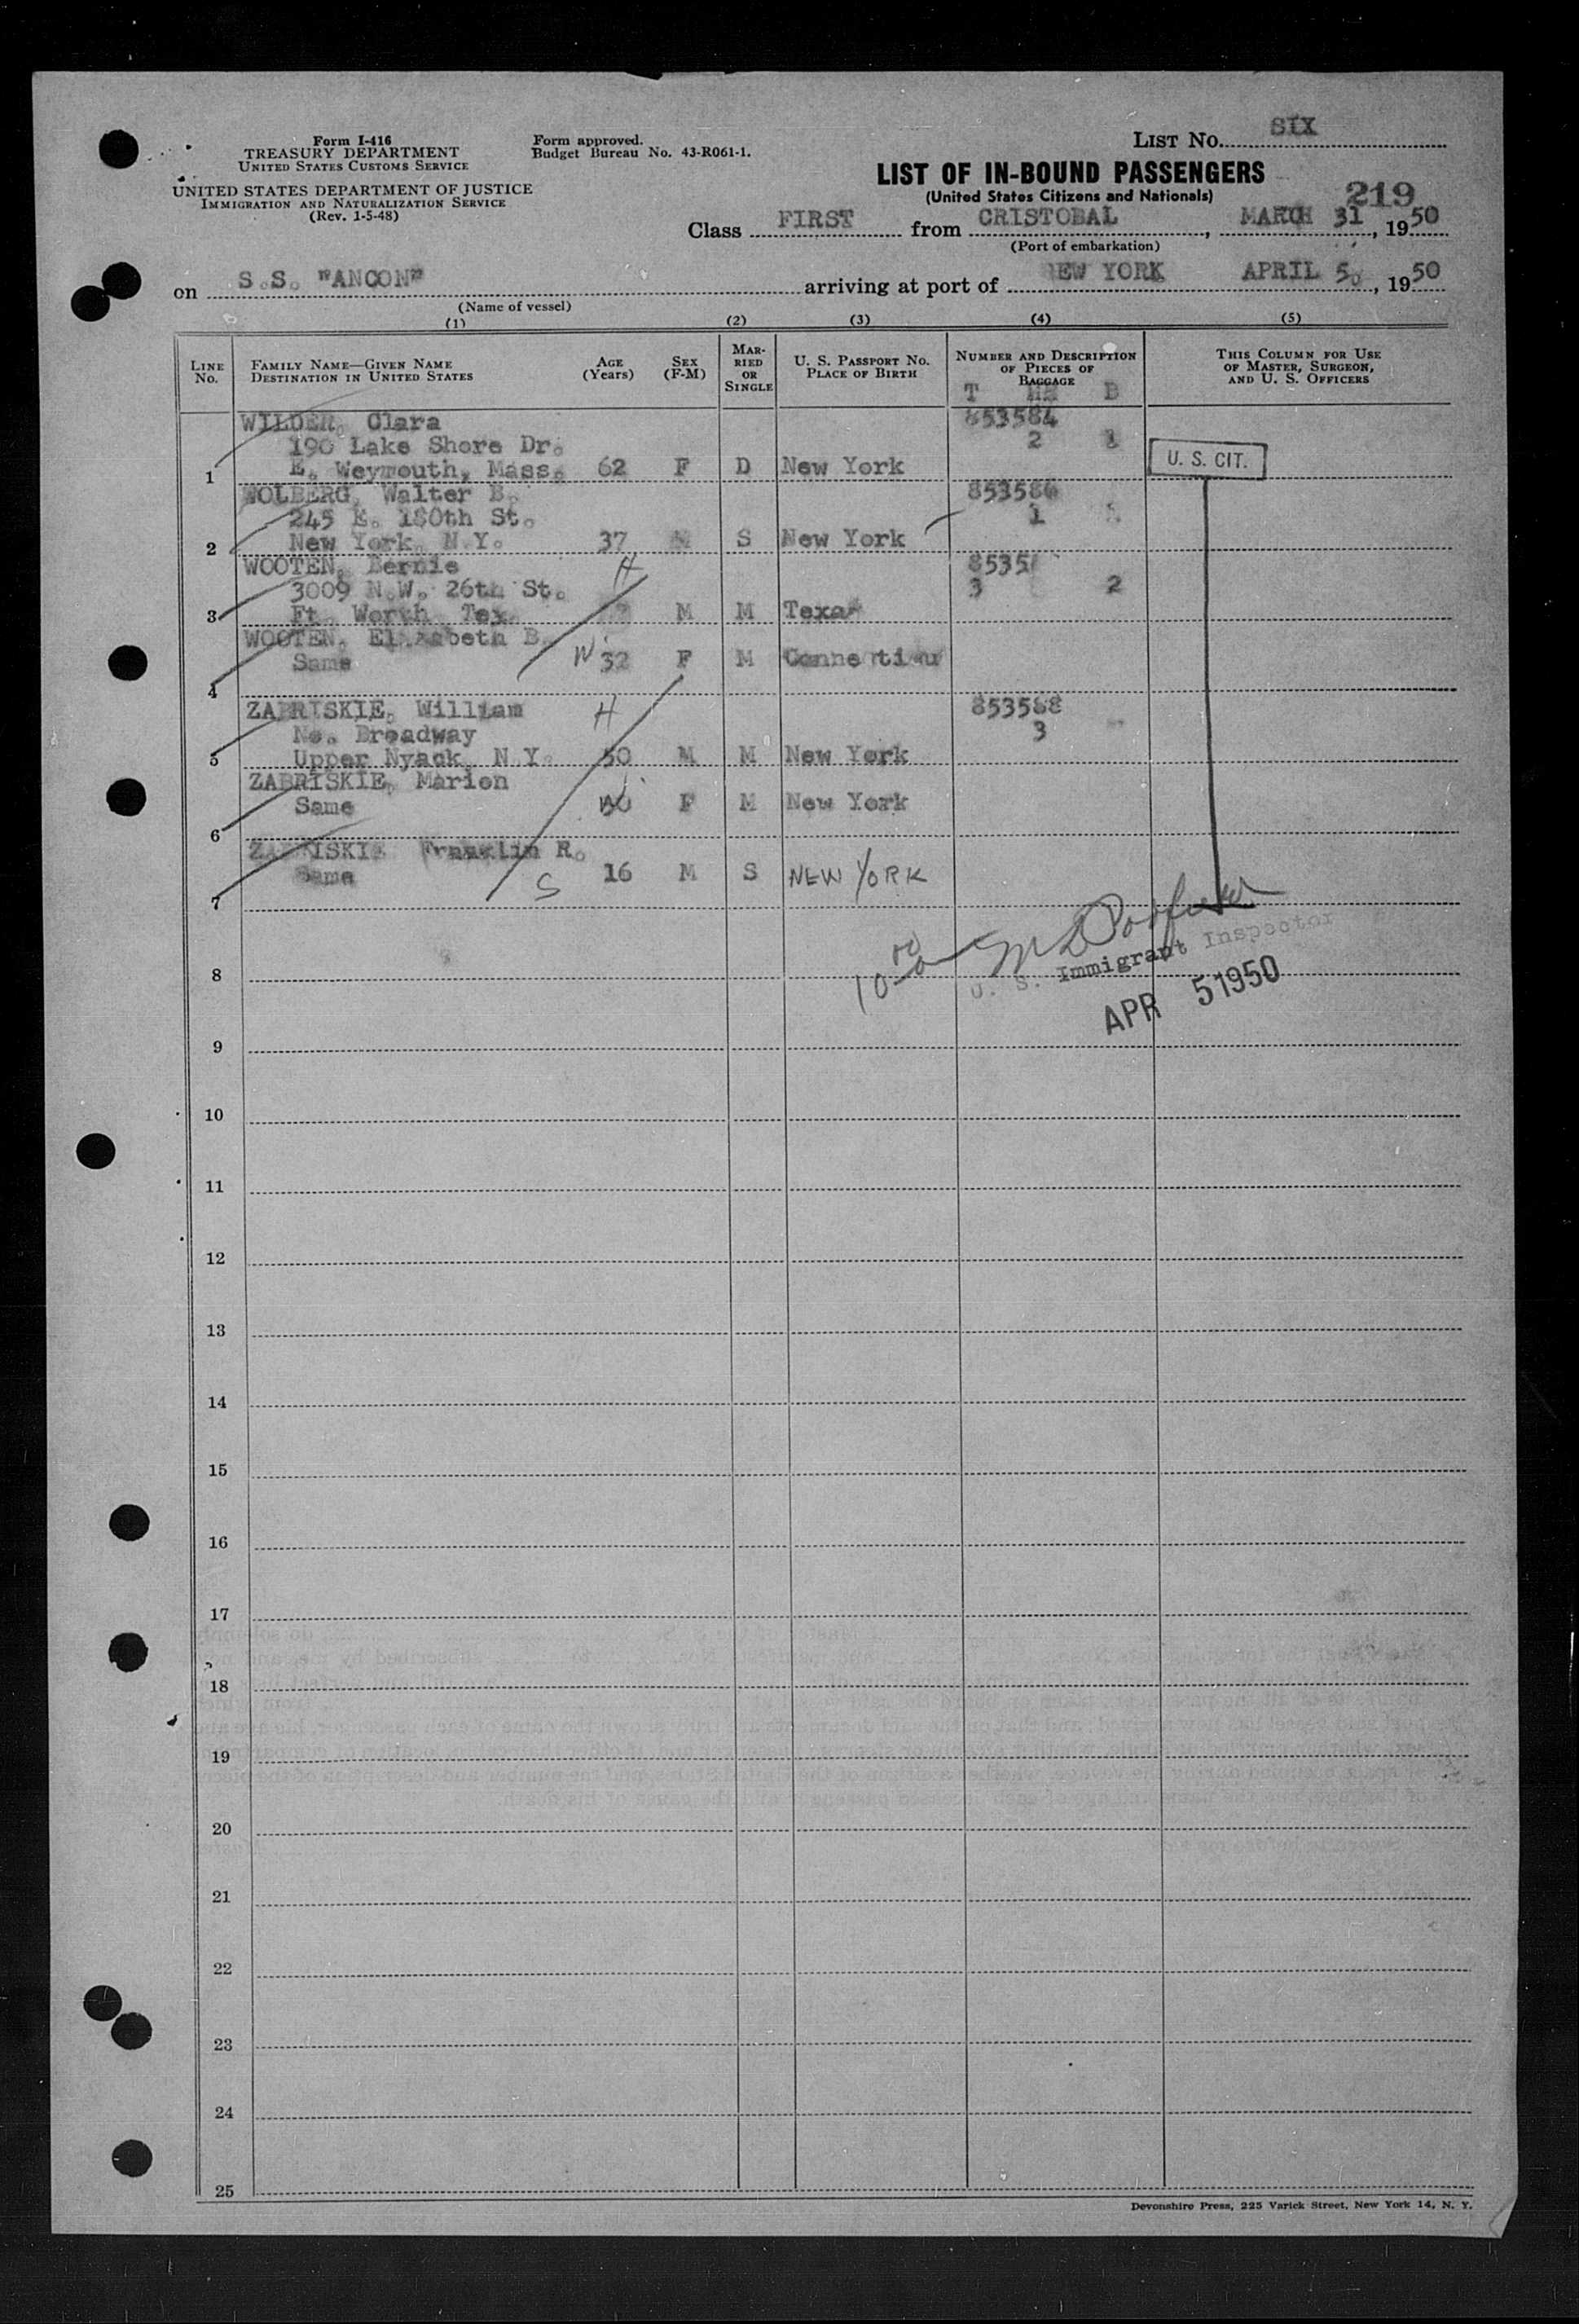 Form I-416
TREASURY DEPARTMENT
UNITED STATES CUSTOMS SERVICE
UNITED STATES DEPARTMENT OF JUSTICE
IMMIGRATION AND NATURALIZATION SERVICE
(Rev. 1-5-48)
Form approved.
Budget Bureau No. 43-R061-1.
LIST NO. SIX
LIST OF IN-BOUND PASSENGERS
(United States Citizens and Nationals)
219
Class FIRST from CRISTOBAL, MARCH 31, 1950
(Port of embarkation)
on S.S. "ANCON" arriving at port of EW YORK APRIL 5, 1950
(Name of vessel)
(1) (2) (3) (4) (5)
LINE NO.
FAMILY NAME—GIVEN NAME
DESTINATION IN UNITED STATES
AGE (Years)
SEX (F-M)
MARRIED OR SINGLE
U. S. PASSPORT NO.
PLACE OF BIRTH
NUMBER AND DESCRIPTION OF PIECES OF BAGGAGE
T HB B
THIS COLUMN FOR USE OF MASTER, SURGEON, AND U. S. OFFICERS
WILDER, Clara 853584
190 Lake Shore Dr. 2
1 E. Weymouth, Mass. 62 F D New York U. S. CIT.
WOLBERG, Walter B. 853586
245 E. 180th St. 1
2 New York, N.Y. 37 M S New York
WOOTEN, Bernie H 8535
3009 N.W. 26th St. 3 2
3 Ft. Worth, Tex. M M Texas
WOOTEN, Elizabeth B.
Same W 32 F M Connecticu
4
ZABRISKIE, William H 853588
No. Broadway 3
5 Upper Nyack, N.Y. 50 M M New York
ZABRISKIE, Marion
Same W F M New York
6
ZABRISKIE Franklin R.
Same S 16 M S NEW YORK
7
U. S. Immigrant Inspector
8
APR 5 1950
9
10
11
12
13
14
15
16
17
18
19
20
21
22
23
24
25
Devonshire Press, 225 Varick Street, New York 14, N. Y.